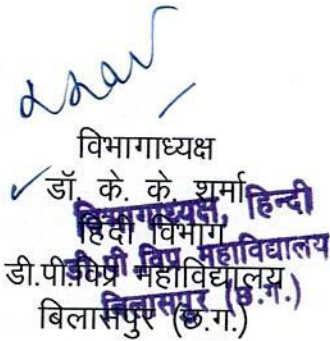 विभागाध्यक्ष
डॉ. के. के. शर्मा
हिंदी विभाग
डी.पी.विप्र महाविद्यालय
बिलासपुर (छ.ग.)
विभागाध्यक्ष, हिन्दी
डी.पी विप्र महाविद्यालय
बिलासपुर (छ.ग.)